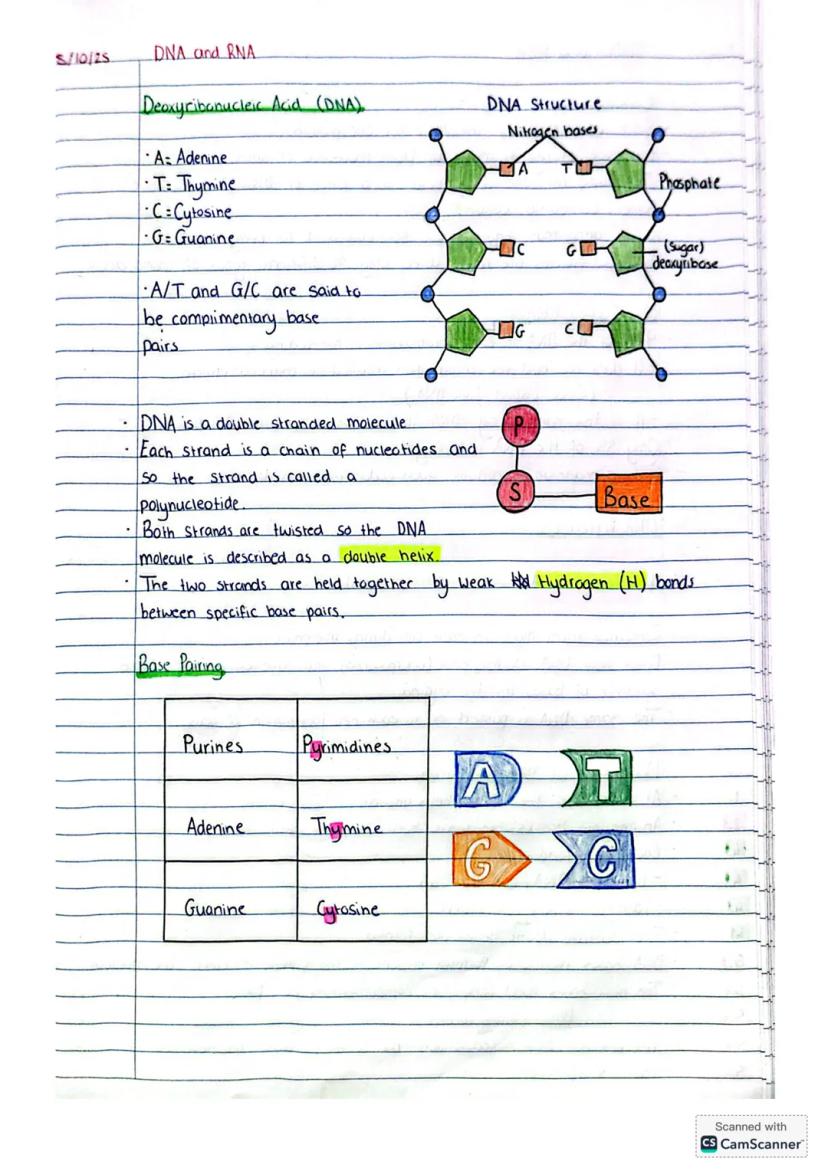 5/10/25 DNA and RNA
Deoxyribonucleic Acid (DNA).
DNA Structure
Nitrogen bases
· A= Adenine
· T= Thymine
· C= Cytosine
· G= Guanine
A T
Phosphate
C G
(sugar)
deoxyribose
G C
· A/T and G/C are said to
be complimentary base
pairs
· DNA is a double stranded molecule
· Each strand is a chain of nucleotides and
so the strand is called a
polynucleotide.
P
S Base
· Both strands are twisted so the DNA
molecule is described as a double helix.
· The two strands are held together by weak Hydrogen (H) bonds
between specific base pairs.
Base Pairing
Purines Pyrimidines
Adenine Thymine
Guanine Cytosine
A T
G C
Scanned with
CS CamScanner